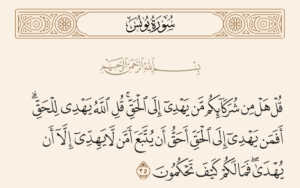 سُورَةُ يُونُسَ
بِسْمِ ٱللَّهِ ٱلرَّحْمَٰنِ ٱلرَّحِيمِ
قُلْ هَلْ مِن شُرَكَآئِكُم مَّن يَهْدِىٓ إِلَى ٱلْحَقِّ ۚ قُلِ ٱللَّهُ يَهْدِى لِلْحَقِّ ۗ
أَفَمَن يَهْدِىٓ إِلَى ٱلْحَقِّ أَحَقُّ أَن يُتَّبَعَ أَمَّن لَّا يَهِدِّىٓ إِلَّآ أَن
يُهْدَىٰ ۖ فَمَا لَكُمْ كَيْفَ تَحْكُمُونَ ٣٥